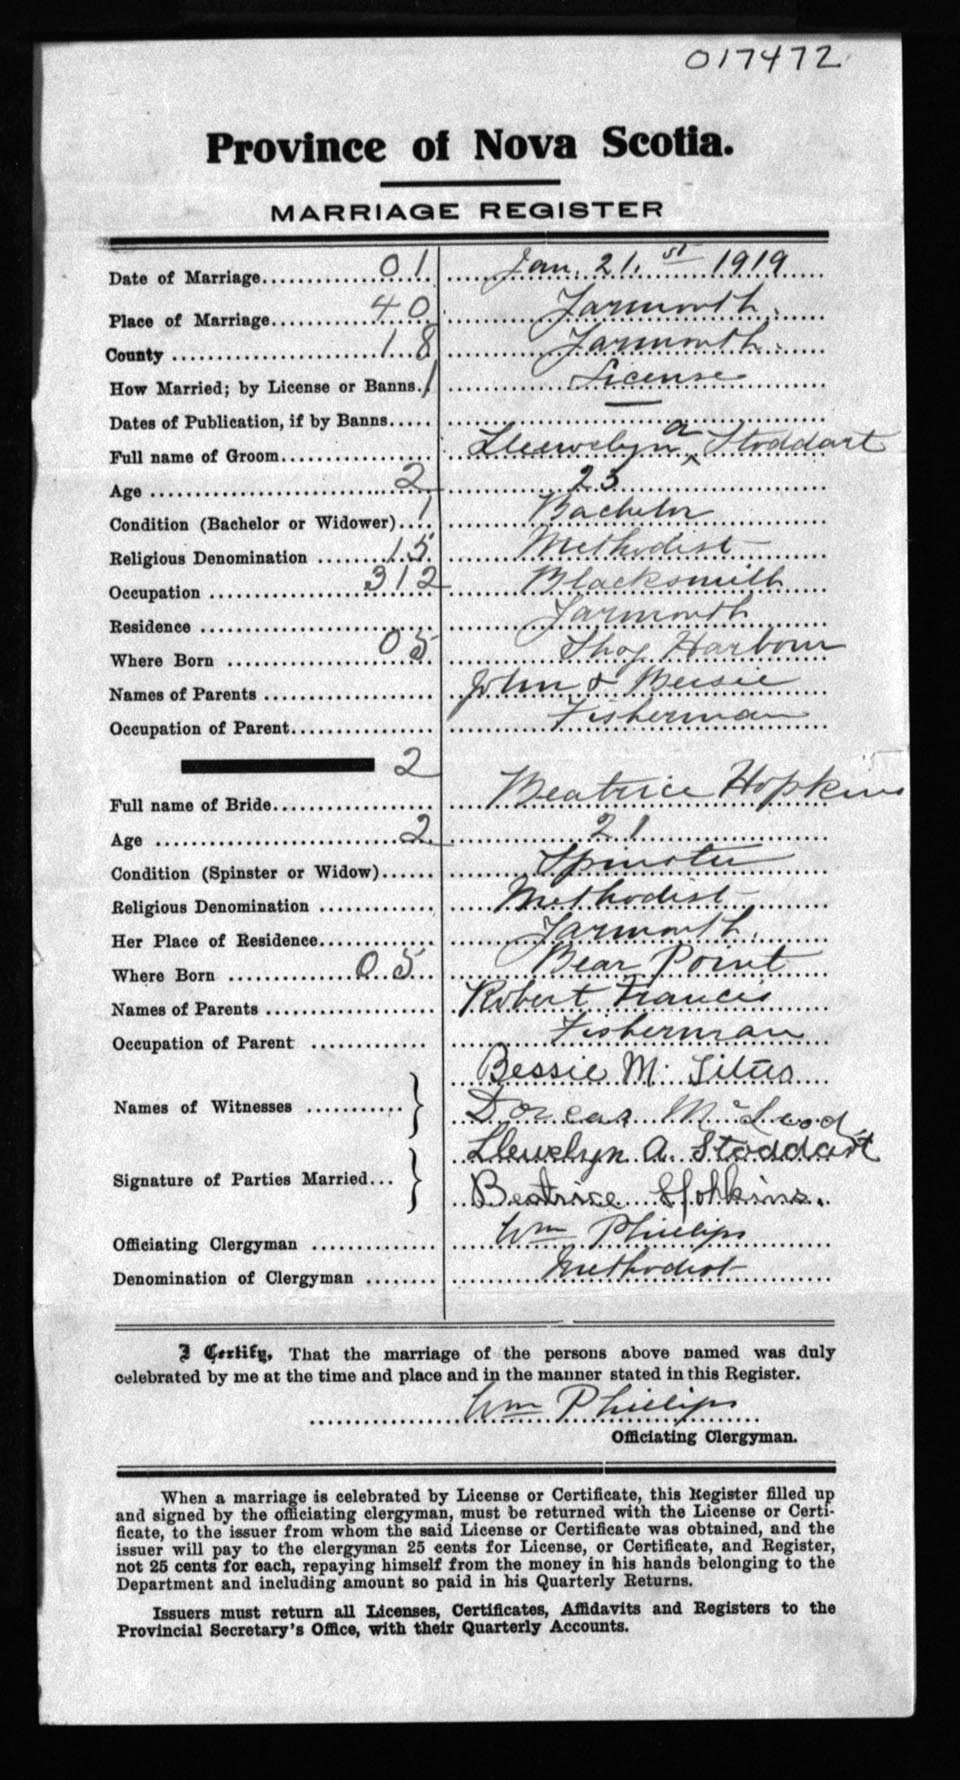 017472
Province of Nova Scotia.
MARRIAGE REGISTER
Date of Marriage 01 Jan. 21. st 1919
Place of Marriage 40 Yarmouth.
County 18 Yarmouth.
How Married; by License or Banns. 1 License
Dates of Publication, if by Banns —
Full name of Groom Llewelyn A Stoddart
Age 2 23
Condition (Bachelor or Widower) 1 Bachelor
Religious Denomination 15 Methodist
Occupation 312 Blacksmith
Residence Yarmouth
Where Born 05 Shag Harbour
Names of Parents John & Bessie
Occupation of Parent Fisherman
2
Full name of Bride Beatrice Hopkins
Age 2 21
Condition (Spinster or Widow) Spinster
Religious Denomination Methodist
Her Place of Residence Yarmouth.
Where Born 05 Bear Point
Names of Parents Robert Francis
Occupation of Parent Fisherman
Bessie M. Titus
Names of Witnesses
Dorcas McLeod
Llewelyn A. Stoddart
Signature of Parties Married
Beatrice Hopkins.
Officiating Clergyman Wm Phillips
Denomination of Clergyman Methodist
I Certify, That the marriage of the persons above named was duly
celebrated by me at the time and place and in the manner stated in this Register.
Wm Phillips
Officiating Clergyman.
When a marriage is celebrated by License or Certificate, this Register filled up
and signed by the officiating clergyman, must be returned with the License or Certi-
ficate, to the issuer from whom the said License or Certificate was obtained, and the
issuer will pay to the clergyman 25 cents for License, or Certificate, and Register,
not 25 cents for each, repaying himself from the money in his hands belonging to the
Department and including amount so paid in his Quarterly Returns.
Issuers must return all Licenses, Certificates, Affidavits and Registers to the
Provincial Secretary's Office, with their Quarterly Accounts.